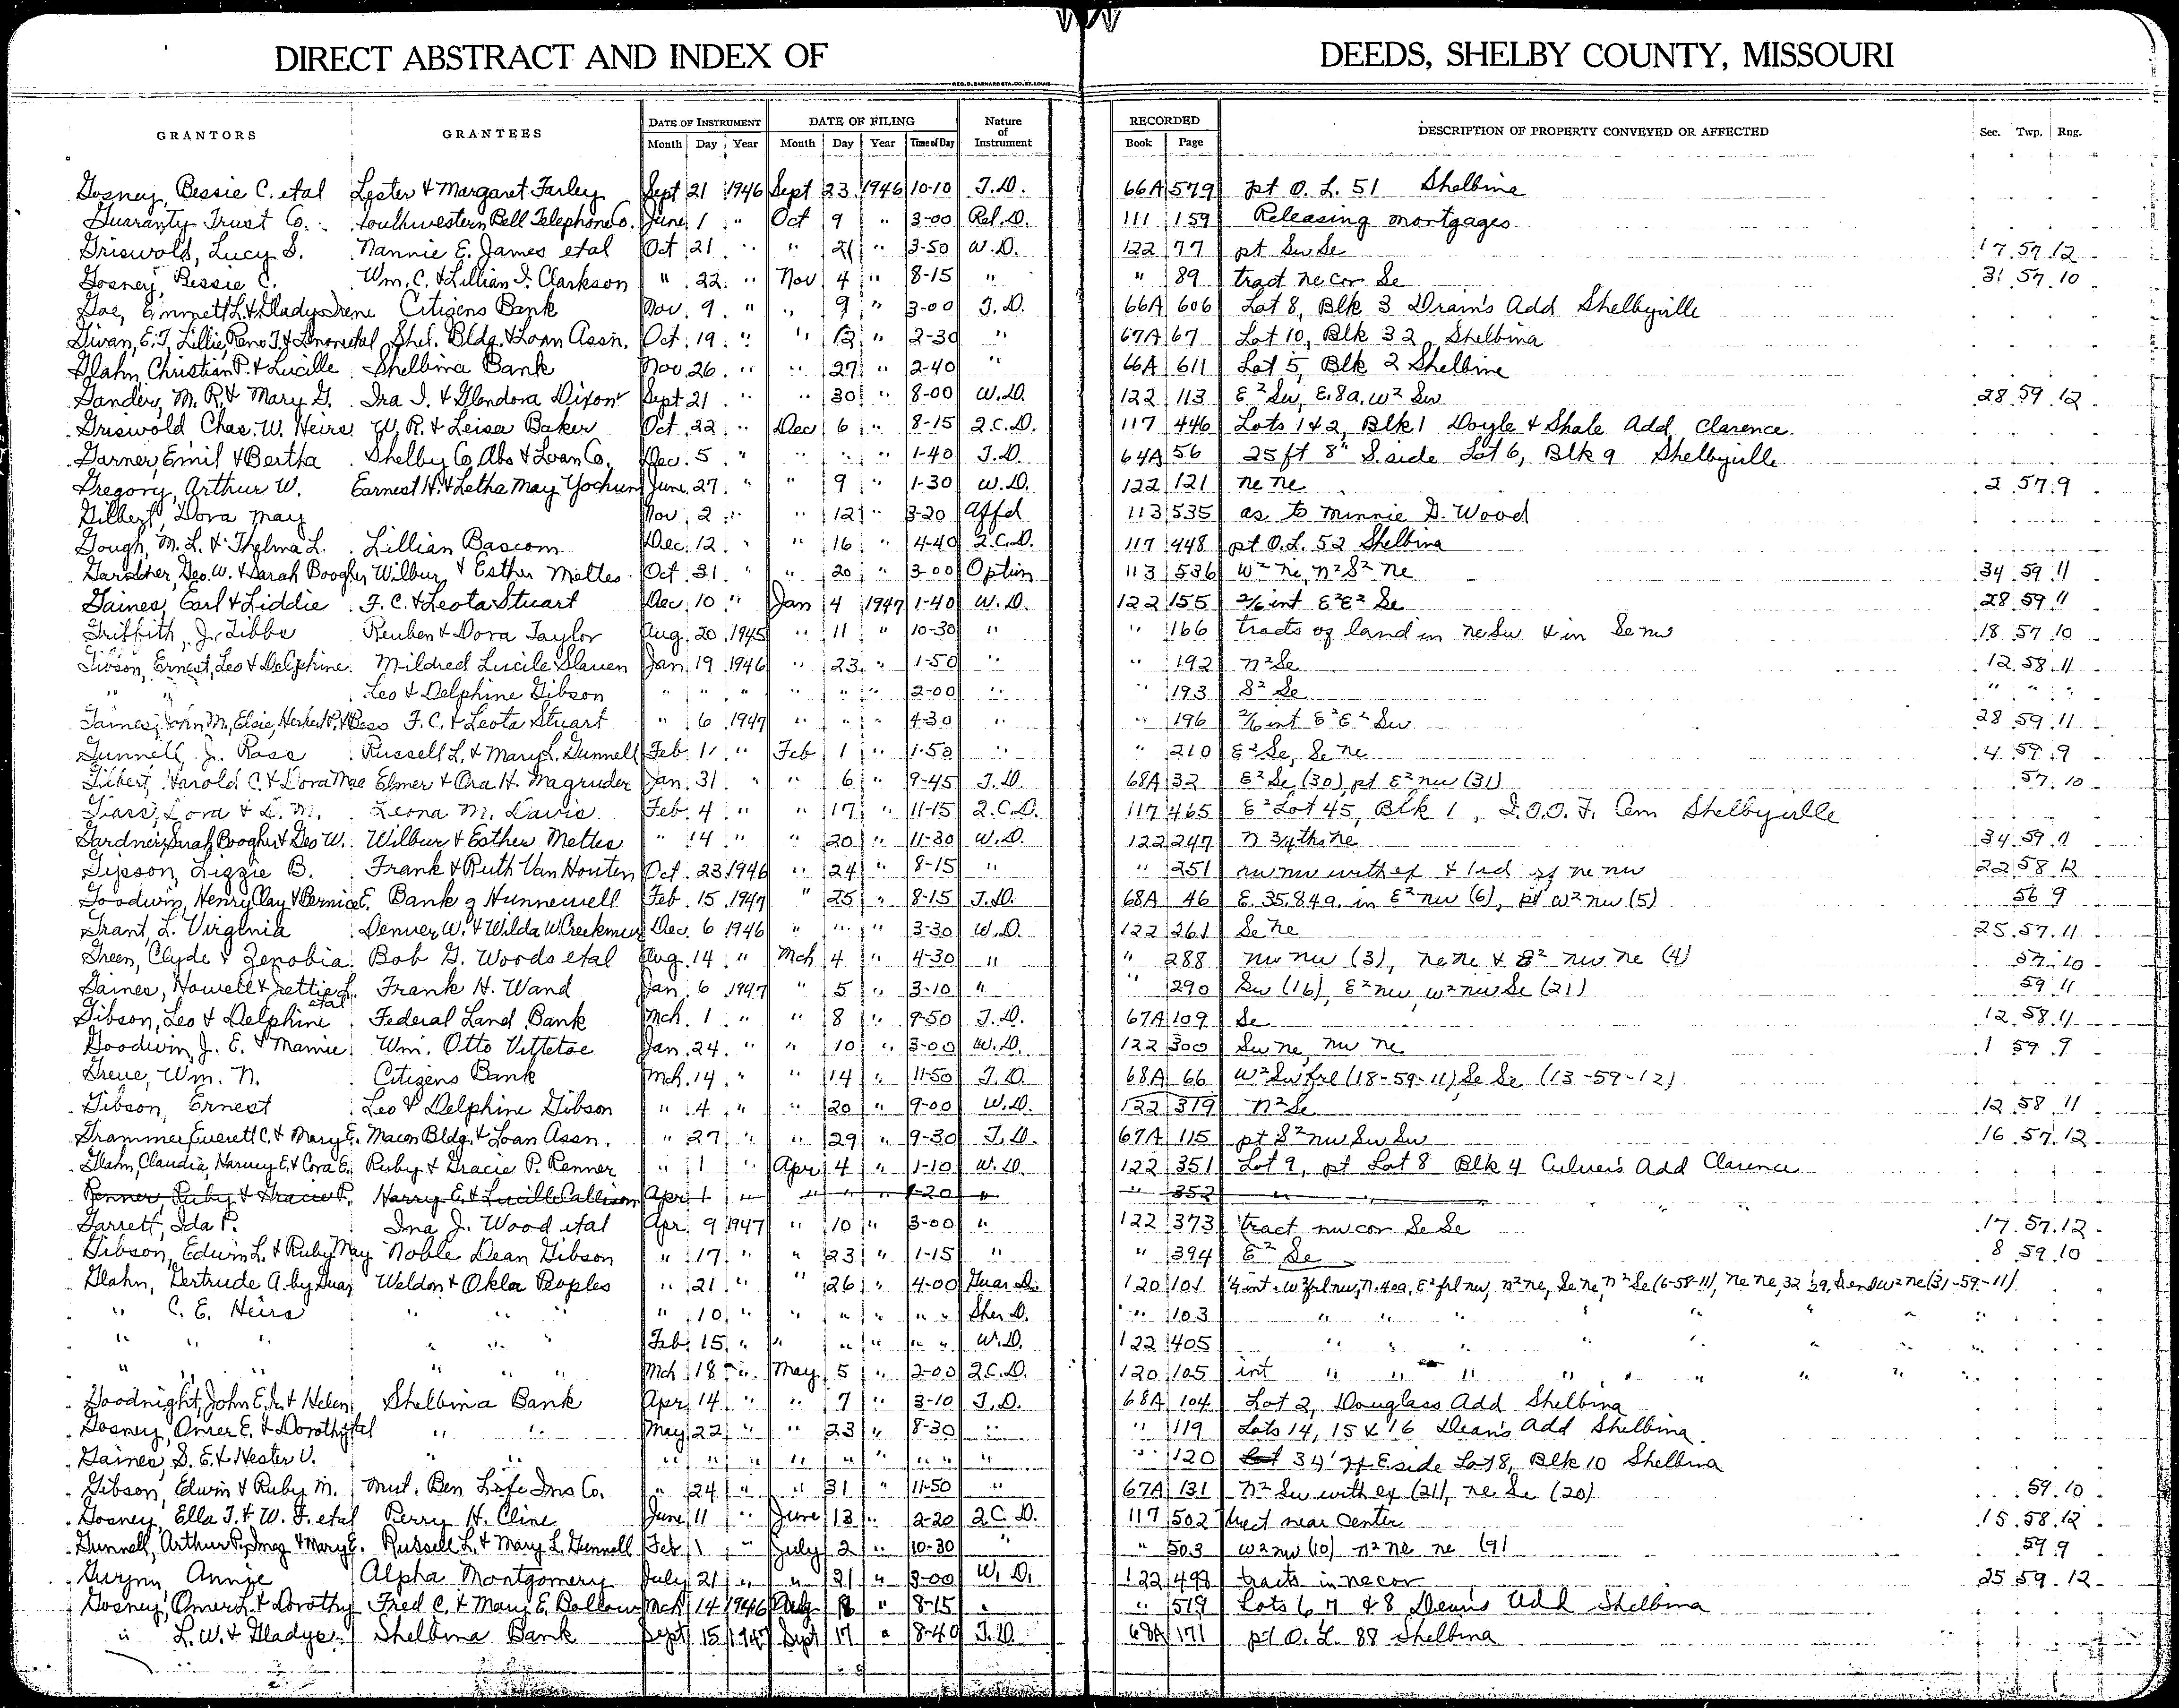 DIRECT ABSTRACT AND INDEX OF DEEDS, SHELBY COUNTY, MISSOURI
GEO. D. BARNARD STA. CO. ST. LOUIS
GRANTORS GRANTEES DATE OF INSTRUMENT Month Day Year DATE OF FILING Month Day Year Time of Day Nature of Instrument RECORDED Book Page DESCRIPTION OF PROPERTY CONVEYED OR AFFECTED Sec. Twp. Rng.
Gosney, Bessie C. etal Lester & Margaret Farley Sept 21 1946 Sept 23 1946 10-10 T.D. 66A 579 pt O. L. 51 Shelbina
Guaranty Trust Co. Southwestern Bell Telephone Co. June 1 " Oct 9 " 3-00 Rel. D. 111 159 Releasing mortgages
Griswold, Lucy S. Nannie E. James etal Oct 21 " " 21 " 3-50 W.D. 122 77 pt Sw Se 17 57 12
Gosney, Bessie C. Wm. C. & Lillian I. Clarkson " 22 " Nov 4 " 8-15 " " 89 tract ne cor Se 31 57 10
Goe, Emmett L. & Gladys Irene Citizens Bank Nov. 9 " " 9 " 3-00 T.D. 66A 606 Lot 8, Blk 3 Drain's Add Shelbyville
Givan, E.T, Lillie, Reno T. & Lenore etal Shel. Bldg. & Loan Assn. Oct. 19 " " 12 " 2-30 " 67A 67 Lot 10, Blk 32 Shelbina
Glahn, Christian P. & Lucille Shelbina Bank Nov. 26 " " 27 " 2-40 " 66A 611 Lot 5, Blk 2 Shelbina
Gander, M. R. & Mary G. Ira I. & Glendora Dixon Sept 21 " " 30 " 8-00 W.D. 122 113 E2 Sw, E. 8a. W2 Sw 28 59 12
Griswold Chas. W. Heirs W. R. & Leisa Baker Oct. 22 " Dec 6 " 8-15 Q.C.D. 117 446 Lots 1 & 2, Blk 1 Doyle & Shale Add Clarence
Garner, Emil & Bertha Shelby Co Abs & Loan Co. Dec. 5 " " " " 1-40 T.D. 64A 56 25 ft 8" S. side Lot 6, Blk 9 Shelbyville
Gregory, Arthur W. Earnest H. & Letha May Yochum June 27 " " 9 " 1-30 W.D. 122 121 ne ne 2 57 9
Gilbert, Dora May Nov. 2 " " 12 " 3-20 Affd 113 535 as to Minnie D. Wood
Gough, M. L. & Thelma L. Lillian Bascom Dec. 12 " " 16 " 4-40 Q.C.D. 117 448 pt O.L. 52 Shelbina
Gardner, Geo. W. & Sarah Boogher Wilbur & Esther Mettes Oct. 31 " " 20 " 3-00 Option 113 536 W2 ne, n2 S2 ne 34 59 11
Gaines, Earl & Liddie F. C. & Leota Stuart Dec. 10 " Jan 4 1947 1-40 W.D. 122 155 2/6 int E2 E2 Se 28 59 11
Griffith, J. Tibbs Reuben & Dora Taylor Aug. 20 1945 " 11 " 10-30 " " 166 tracts of land in ne Sw & in Se nw 18 57 10
Gibson, Ernest, Leo & Delphine Mildred Lucile Slaven Jan 19 1946 " 23 " 1-50 " " 192 n2 Se 12 58 11
" " Leo & Delphine Gibson " " " " " " 2-00 " " 193 S2 Se " " "
Gaines, John M., Elsie, Herbert P. & Bess F. C. & Leota Stuart " 6 1947 " " " 4-30 " " 196 2/6 int E2 E2 Sw 28 59 11
Gunnell, J. Ross Russell L. & Mary L. Gunnell Feb. 1 " Feb 1 " 1-50 " " 210 E2 Se, Se ne 4 59 9
Gilbert, Harold C. & Dora Mae Elmer & Ora H. Magruder Jan. 31 " " 6 " 9-45 T.D. 68A 32 E2 Se (30) pt E2 nw (31) 57 10
Lora & D. M. Leona M. Davis Feb. 4 " " 17 " 11-15 Q.C.D. 117 465 E2 Lot 45, Blk 1, I.O.O.F. Cem Shelbyville
Gardner, Sarah Boogher & Geo W. Wilbur & Esther Mettes " 14 " " 20 " 11-30 W.D. 122 247 n 3/4ths ne 34 59 11
Gipson, Lizzie B. Frank & Ruth Van Houten Oct. 23 1946 " 24 " 8-15 " " 251 nw nw with ex & of ne nw 22 58 12
Goodwin, Henry Clay & Bernice E. Bank of Hunnewell Feb. 15 1947 " 25 " 8-15 T.D. 68A 46 E. 35.84a. in E2 nw (6), pt W2 nw (5) 56 9
Grant, L. Virginia Denver W. & Wilda W. Creekmur Dec. 6 1946 " " " 3-30 W.D. 122 261 Se ne 25 57 11
Green, Clyde & Zenobia Bob G. Woods etal Aug. 14 " Mch 4 " 4-30 " " 288 nw nw (3), ne ne & E2 nw ne (4) 57 10
Gaines, Howell & Lettie L. etal Frank H. Wand Jan. 6 1947 " 5 " 3-10 " " 290 Sw (16), E2 nw, W2 nw Se (21) 59 11
Gibson, Leo & Delphine Federal Land Bank Mch. 1 " " 8 " 9-50 T.D. 67A 109 Se 12 58 11
Goodwin, J. E. & Mamie Wm. Otto Vittetoe Jan. 24 " " 10 " 3-00 W.D. 122 300 Sw ne, nw ne 1 59 9
Wm. N. Citizens Bank Mch. 14 " " 14 " 11-50 T.D. 68A 66 W2 Sw frl (18-59-11) Se Se (13-59-12)
Gibson, Ernest Leo & Delphine Gibson " 4 " " 20 " 9-00 W.D. 122 319 n2 Se 12 58 11
Grammer, Everett C. & Mary E. Macon Bldg. & Loan Assn. " 27 " " 29 " 9-30 T.D. 67A 115 pt S2 nw Sw Sw 16 57 12
Glahn, Claudia, Harvey E. & Cora E. Ruby & Gracie P. Renner " 1 " Apr 4 " 1-10 W.D. 122 351 Lot 9, pt Lot 8 Blk 4 Culver's Add Clarence
Renner, Ruby & Gracie P. Harry E. & Lucille Callison Apr 1 " " " " 1-20 " " 352 "
Garrett, Ida P. Ina J. Wood etal Apr. 9 1947 " 10 " 3-00 " 122 373 tract nw cor Se Se 17 57 12
Gibson, Edwin L. & Ruby May Noble Dean Gibson " 17 " " 23 " 1-15 " " 394 E2 Se 8 59 10
Glahn, Gertrude A. by Guar. Weldon & Okla Peoples " 21 " " 26 " 4-00 Guar. D. 120 101 int. W2 frl nw, n. 40a, E2 frl nw, n2 ne, Se ne, n2 Se (6-58-11), ne ne, W2 ne (31-59-11)
" C. E. Heirs " " " 10 " " " " " " Sher D. " 103 " " " " " "
" " " " " Feb. 15 " " " " " " W.D. 122 405 " " " " " "
" " " " " " Mch 18 " May 5 " 2-00 Q.C.D. 120 105 int " " " " " "
Goodnight, John E. Jr. & Helen Shelbina Bank Apr. 14 " " 7 " 3-10 T.D. 68A 104 Lot 2, Douglass Add Shelbina
Gosney, Omer E. & Dorothy etal " " May 22 " " 23 " 8-30 " " 119 Lots 14, 15 & 16 Dean's Add Shelbina
Gaines, S. E. & Hester V. " " " " " " " " " " " " 120 Lot 34' of E side Lot 8, Blk 10 Shelbina
Gibson, Edwin & Ruby M. Mut. Ben Life Ins Co. " 24 " " 31 " 11-50 " 67A 131 n2 Sw with ex (21), ne Se (20) 59 10
Gosney, Ella T. & W. F. etal Perry H. Cline June 11 " June 13 " 2-20 Q.C.D. 117 502 tract near center 15 58 12
Gunnell, Arthur P., Inez & Mary E. Russell L. & Mary L. Gunnell Feb 1 " July 2 " 10-30 " " 503 W2 nw (10) n2 ne ne (9) 59 9
Gwynn, Annie Alpha Montgomery July 21 " " 21 " 3-00 W.D. 122 498 tracts in ne cor 25 59 12
Gosney, Omer L. & Dorothy Fred C. & Mary E. Ballow Mch 14 1946 Aug 18 " 8-15 " " 519 Lots 6 7 & 8 Dean's Add Shelbina
" L. W. & Gladys Shelbina Bank Sept 15 1947 Sept 17 " 8-40 T.D. 68A 171 pt O. L. 88 Shelbina